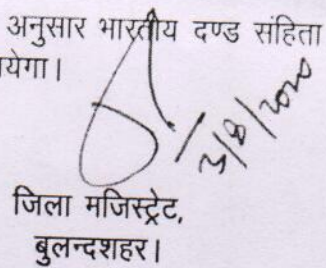 अनुसार भारतीय दण्ड संहिता
येगा।
3/8/2020
जिला मजिस्ट्रेट,
बुलन्दशहर।